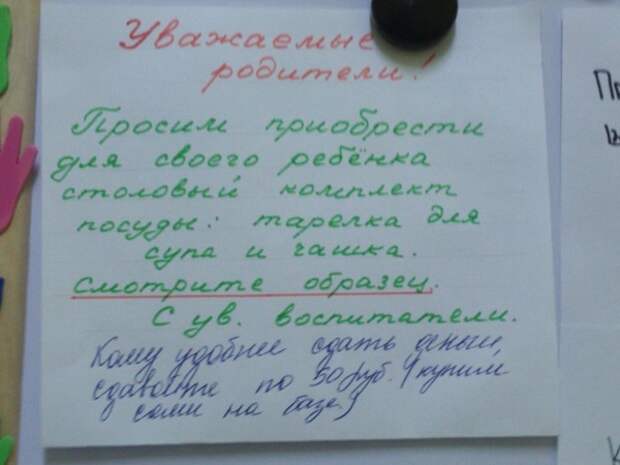 Уважаемые
родители!
Просим приобрести
для своего ребёнка
столовый комплект
посуды: тарелка для
супа и чашка.
Смотрите образец.
С ув. воспитатели.
Кому удобнее сдать деньги,
сдавайте по 50 руб. (купим
сами на базе)